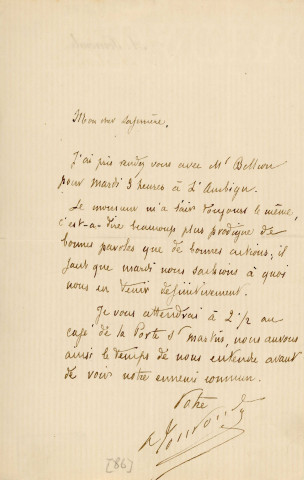 Mon cher Lafontaine,
J'ai pris rendez vous avec Mr Bellion
pour mardi 3 heures à L'Ambigu.
Le monsieur m'a l'air toujours le même,
c'est-a-dire beaucoup plus prodigue de
bonnes paroles que de bonnes actions; il
faut que mardi nous sachions à quoi
nous en tenir définitivement.
Je vous attendrai à 2 1/2 au
café de la Porte St Martin, nous aurons
ainsi le temps de nous entendre avant
de voir notre ennemi commun.
Votre
[86]